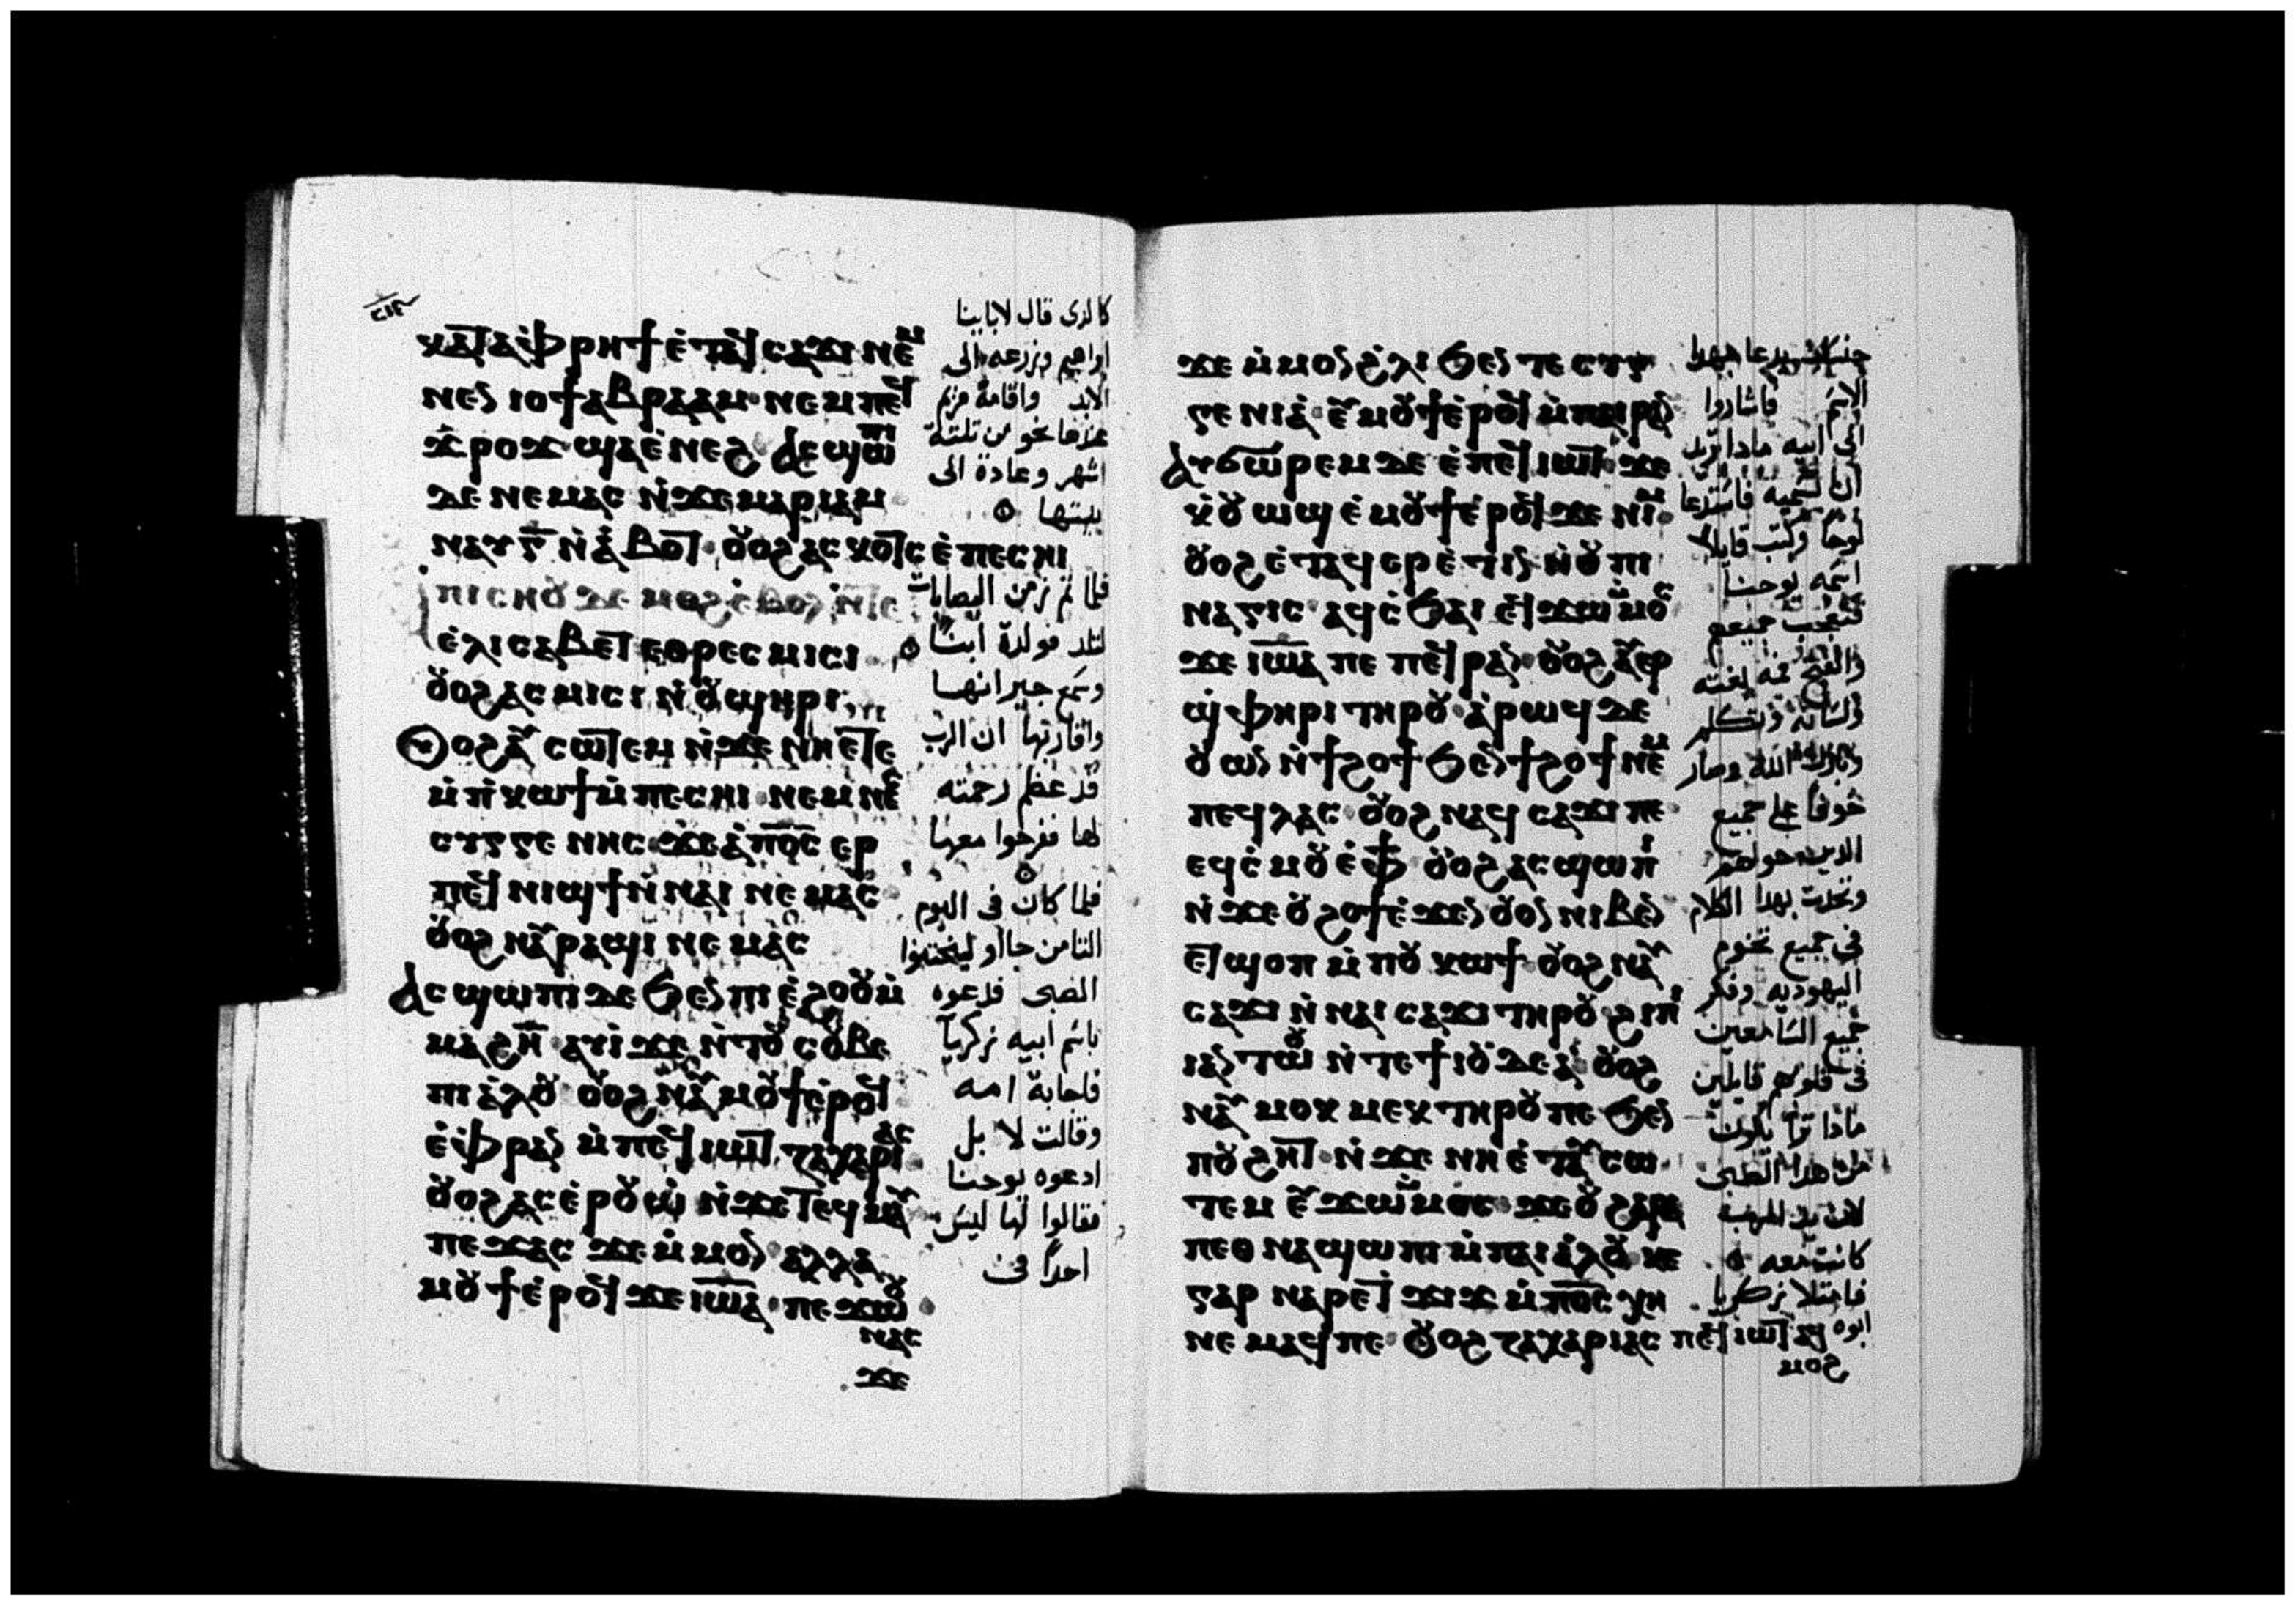 ⲕⲁⲧⲁ ⲫⲣⲏϯ ⲉⲧⲁϥⲥⲁϫⲓ ⲛⲉⲙ
ⲛⲉⲛⲓⲟϯ ⲁⲃⲣⲁⲁⲙ ⲛⲉⲙ ⲡⲉϥ
ϫⲣⲟϫ ϣⲁ ⲉⲛⲉϩ ⲁⲥϣⲱⲡⲓ
ⲇⲉ ⲛⲉⲙⲁⲥ ⲛ̇ϫⲉ ⲙⲁⲣⲓⲁⲙ
ⲛⲁⲩ ⲅ̅ ⲛ̇ⲁⲃⲟⲧ ⲟⲩⲟϩ ⲁⲥⲕⲟⲧⲥ ⲉ̇ⲡⲉⲥⲏⲓ
ⲡⲓⲥⲏⲟⲩ ⲇⲉ ⲙⲟϩ ⲉ̇ⲃⲟⲗ ⲛ̇ⲧⲉ
ⲉ̇ⲗⲓⲥⲁⲃⲉⲧ ⲉⲑⲣⲉⲥⲙⲓⲥⲓ
ⲟⲩⲟϩ ⲁⲥⲙⲓⲥⲓ ⲛ̇ⲟⲩϣⲏⲣⲓ
ⲟⲩⲟϩ ⲁⲩⲥⲱⲧⲉⲙ ⲛ̇ϫⲉ ⲛⲏⲉⲧⲉ
ⲙ̇ⲡⲕⲱϯ ⲙ̇ⲡⲉⲥⲏⲓ ⲛⲉⲙ ⲛⲉⲥ
ⲥⲩⲅⲅⲉⲛⲏⲥ ϫⲉ ⲁ̇ⲡ︦ⲟ︦ⲥ︦ ⲉⲣ
ⲡⲉϥⲛⲓϣϯ ⲛ̇ⲛⲁⲓ ⲛⲉⲙⲁⲥ
ⲟⲩⲟϩ ⲛⲁⲩⲣⲁϣⲓ ⲛⲉⲙⲁⲥ
ⲁⲥϣⲱⲡⲓ ⲇⲉ ϧⲉⲛ ⲡⲓⲉ̇ϩⲟⲟⲩ ⲙ̇
ⲙⲁϩⲏ̅ ⲁⲩⲓ̇ ϫⲉ ⲛ̇ⲧⲟⲩⲥⲟⲩⲃⲉ
ⲡⲓⲁ̇ⲗⲟⲩ ⲟⲩⲟϩ ⲛⲁⲩⲙⲟⲩϯ ⲉ̇ⲣⲟϥ
ⲉ̇ⲫⲣⲁⲛ ⲙ̇ⲡⲉϥⲓⲱⲧ ⲍⲁⲭⲁⲣⲓⲁⲥ
ⲟⲩⲟϩ ⲁⲥⲉ̇ⲣⲟⲩⲱ̇ ⲛ̇ϫⲉ ⲧⲉϥⲙⲁⲩ
ⲡⲉϫⲁⲥ ϫⲉ ⲙ̇ⲙⲟⲛ ⲁⲗⲗⲁ
ⲙⲟⲩϯ ⲉ̇ⲣⲟϥ ϫⲉ ⲓⲱ̅ⲁ̅ ⲡⲉϫⲱⲟⲩ
ⲛⲁⲥ
ϫⲉ
كالذى قال لاباينا
ابراهيم وزرعه الى
الابد واقامة مريم
عندها نحو من تلتة
اشهر وعادة الى
بيتها
فلما تم زمن اليصابات
لتلد فولدة ابنا
وسمع جيرانها
واقاربها ان الرب
قد عظم رحمته
لها ففرحوا معها
فلما كان فى اليوم
التامن جااو ليختنوا
الصبى فدعوه
باسم ابيه زكريا
فاجابة امه
وقالت لا بل
ادعوه يوحنا
فقالوا لها ليس
احداً فى
ϫⲉ ⲙ̇ⲙⲟⲛ ϩ̇ⲗⲓ ϧⲉⲛ ⲧⲉⲥⲩⲅ
ⲅⲉⲛⲓⲁ̇ ⲉⲩⲙⲟⲩϯ ⲉ̇ⲣⲟϥ ⲙ̇ⲡⲁⲓⲣⲁⲛ
ⲁⲩϭⲱⲣⲉⲙ ⲇⲉ ⲉ̇ⲡⲉϥⲓⲱⲧ ϫⲉ
ⲭ̇ⲟⲩⲱϣ ⲉ̇ⲙⲟⲩϯ ⲉ̇ⲣⲟϥ ϫⲉ ⲛⲓⲙ
ⲟⲩⲟϩ ⲉ̇ⲧⲁϥⲉⲣⲉ̇ⲧⲓⲛ ⲛ̇ⲟⲩⲡⲓ
ⲛⲁⲅⲓⲥ ⲁϥⲥ̇ϧⲁⲓ ⲉϥϫⲱ ⲙ̇ⲙⲟⲥ
ϫⲉ ⲓⲱ̅ⲁ̅ ⲡⲉ ⲡⲉϥⲣⲁⲛ ⲟⲩⲟϩ ⲁⲩⲉⲣ
ϣ̇ⲫⲏⲣⲓ ⲧⲏⲣⲟⲩ ⲁ̇ⲣⲱϥ ⲇⲉ
ⲟⲩⲱⲛ ⲛ̇ϯϩⲟϯ ϧⲉⲛ ϯϩⲟϯ ⲛⲉⲙ
ⲡⲉϥⲗⲁⲥ ⲟⲩⲟϩ ⲛⲁϥⲥⲁϫⲓ ⲡⲉ
ⲉϥⲥ̇ⲙⲟⲩ ⲉ̇ⲫϯ ⲟⲩⲟϩ ⲁⲥϣⲱⲡⲓ
ⲛ̇ϫⲉ ⲟⲩϩⲟϯ ⲉ̇ϫⲉⲛ ⲟⲩⲟⲛ ⲛⲓⲃⲉⲛ
ⲉⲧϣⲟⲡ ⲙ̇ⲡⲟⲩⲕⲱϯ ⲟⲩⲟϩ ⲛⲁⲩ
ⲥⲁϫⲓ ⲛ̇ⲛⲁⲓⲥⲁϫⲓ ⲧⲏⲣⲟⲩ ϩⲓⲡⲓ
ⲓⲁⲛⲧⲱⲟⲩ ⲛ̇ⲧⲉ ϯⲓⲟⲩⲇⲉⲁ̇ ⲟⲩⲟϩ
ⲛⲁⲩⲙⲟⲕⲙⲉⲕ ⲧⲏⲣⲟⲩ ⲡⲉ ϧⲉⲛ
ⲡⲟⲩϩⲏⲧ ⲛ̇ϫⲉ ⲛⲏⲉ̇ⲧⲁⲩⲥⲱ
ⲧⲉⲙ ⲉⲩϫⲱ ⲙ̇ⲙⲟⲥ ϫⲉ ⲟⲩ ϩⲁⲣⲁ
ⲡⲉⲑⲛⲁϣⲱⲡⲓ ⲙ̇ⲡⲁⲓⲁ̇ⲗⲟⲩ ⲕⲉ
ⲅⲁⲣ ⲛⲁⲣⲉ ⲧϫⲓϫ ⲙ̇ⲡ︦ⲟ︦ⲥ︦ ⲭⲏ
ⲛⲉⲙⲁϥ ⲡⲉ ⲟⲩⲟϩ ⲍⲁⲭⲁⲣⲓⲁⲥ ⲡⲉϥⲓⲱⲧ ⲁϥ
ⲙⲟϩ
جنسك يدعا بهدا
الاسم فاشاروا
الى ابيه مادا تريد
ان تسميه فاستدعا
لوحا وكتب قايلا
اسمه يوحنا
فتعجب جميعهم
وانفتح فمه بغتة
ولسانه وتكلم
وبارك الله وصار
خوفا على جميع
الدين حولهم
وتحدت بهدا الكلام
فى جميع تخوم
اليهودية وفكر
جميع السامعين
فى قلوبهم قايلين
مادا ترا يكون
من هدا الصبى
لان يد الرب
كانت معه
فامتلا زكريا
ابوه